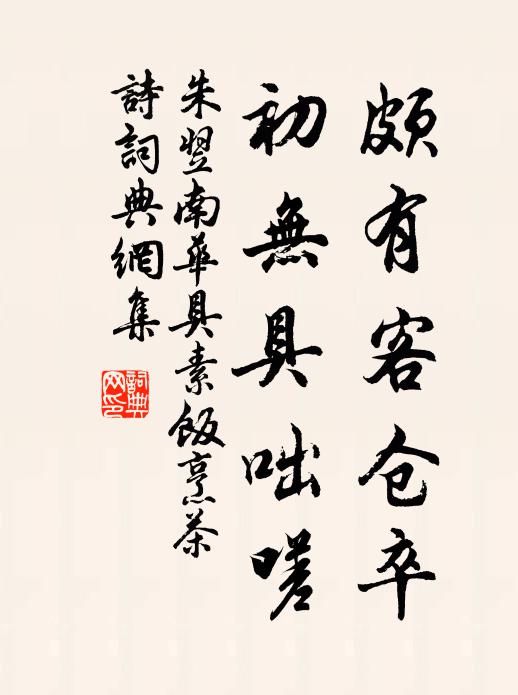 頗有客仓卒
初無具咄嗟
朱翌南華具素飯烹茶
詩詞典網集
詞典网印